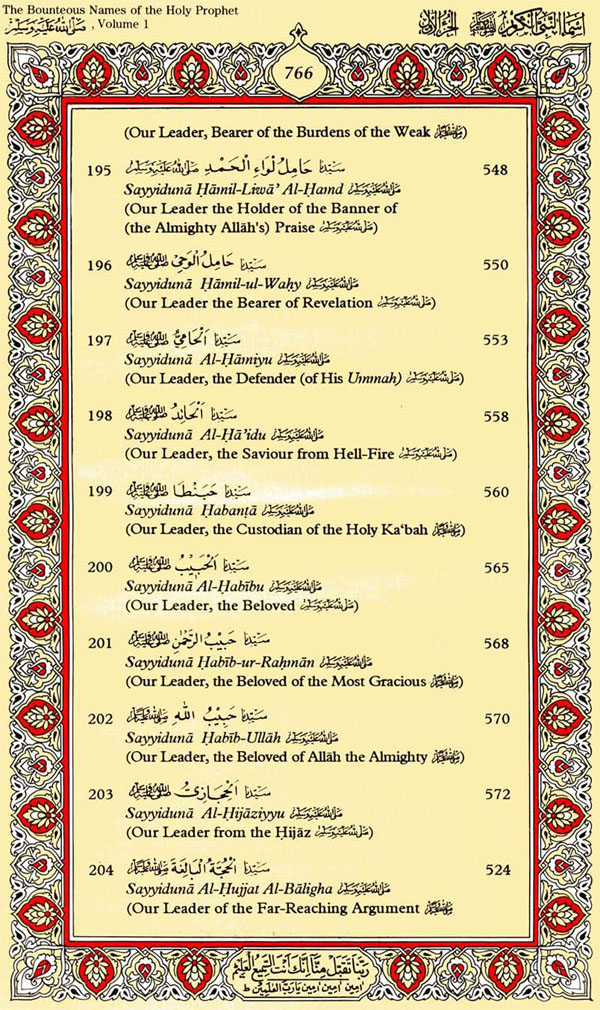 The Bounteous Names of the Holy Prophet
صلى الله عليه وسلم , Volume 1
اسماء النبی الکریم ﷺ الجزء الاول
766
(Our Leader, Bearer of the Burdens of the Weak ﷺ)
195 سَيِّدُنَا حَامِلُ لِوَاءِ الْحَمْدِ صلى الله عليه وسلم 548
Sayyidunā Ḥāmil-Liwā’ Al-Ḥamd ﷺ
(Our Leader the Holder of the Banner of
(the Almighty Allāh's) Praise ﷺ)
196 سَيِّدُنَا حَامِلُ الْوَحْيِ ﷺ 550
Sayyidunā Ḥāmil-ul-Waḥy ﷺ
(Our Leader the Bearer of Revelation ﷺ)
197 سَيِّدُنَا الْحَامِيُّ ﷺ 553
Sayyidunā Al-Ḥāmiyu ﷺ
(Our Leader, the Defender (of His Ummah) ﷺ)
198 سَيِّدُنَا الْحَائِدُ ﷺ 558
Sayyidunā Al-Ḥā’idu ﷺ
(Our Leader, the Saviour from Hell-Fire ﷺ)
199 سَيِّدُنَا حَبَنْطَا ﷺ 560
Sayyidunā Ḥabanṭā ﷺ
(Our Leader, the Custodian of the Holy Ka‘bah ﷺ)
200 سَيِّدُنَا الْحَبِيْبُ ﷺ 565
Sayyidunā Al-Ḥabību ﷺ
(Our Leader, the Beloved ﷺ)
201 سَيِّدُنَا حَبِيْبُ الرَّحْمٰنِ ﷺ 568
Sayyidunā Ḥabīb-ur-Raḥmān ﷺ
(Our Leader, the Beloved of the Most Gracious ﷺ)
202 سَيِّدُنَا حَبِيْبُ اللهِ ﷺ 570
Sayyidunā Ḥabīb-Ullāh ﷺ
(Our Leader, the Beloved of Allāh the Almighty ﷺ)
203 سَيِّدُنَا الْحِجَازِيُّ ﷺ 572
Sayyidunā Al-Ḥijāziyyu ﷺ
(Our Leader from the Ḥijāz ﷺ)
204 سَيِّدُنَا الْحُجَّةُ الْبَالِغَةُ ﷺ 524
Sayyidunā Al-Ḥujjat Al-Bāligha ﷺ
(Our Leader of the Far-Reaching Argument ﷺ)
رَبَّنَا تَقَبَّلْ مِنَّا اِنَّكَ اَنْتَ السَّمِيْعُ الْعَلِيْمُ
اٰمِيْن اٰمِيْن اٰمِيْن يَا رَبَّ الْعٰلَمِيْنَ ط